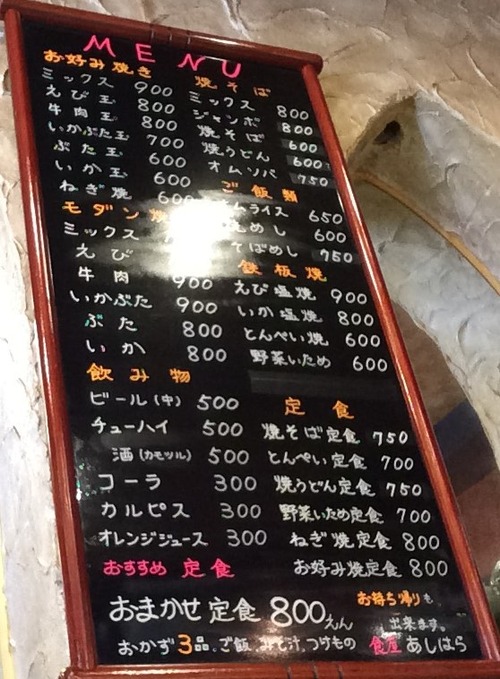 MENU
お好み焼き
ミックス 900
えび玉 800
牛肉玉 800
いかぶた玉 700
ぶた玉 600
いか玉 600
ねぎ焼 600
モダン焼
ミックス
えび
牛肉 900
いかぶた 900
ぶた 800
いか 800
飲み物
ビール(中) 500
チューハイ 500
酒(カモツル) 500
コーラ 300
カルピス 300
オレンジジュース 300
焼そば
ミックス 800
ジャンボ 800
焼そば 600
焼うどん 600
オムソバ 750
ご飯類
オムライス 650
めし 600
そばめし 750
鉄板焼
えび塩焼 900
いか塩焼 800
とんぺい焼 600
野菜いため 600
定食
焼そば定食 750
とんぺい定食 700
焼うどん定食 750
野菜いため定食 700
ねぎ焼定食 800
お好み焼定食 800
おすすめ 定食
おまかせ定食 800えん
おかず3品、ご飯、みそ汁、つけもの
お持ち帰りも
出来ます。
食屋 あしはら